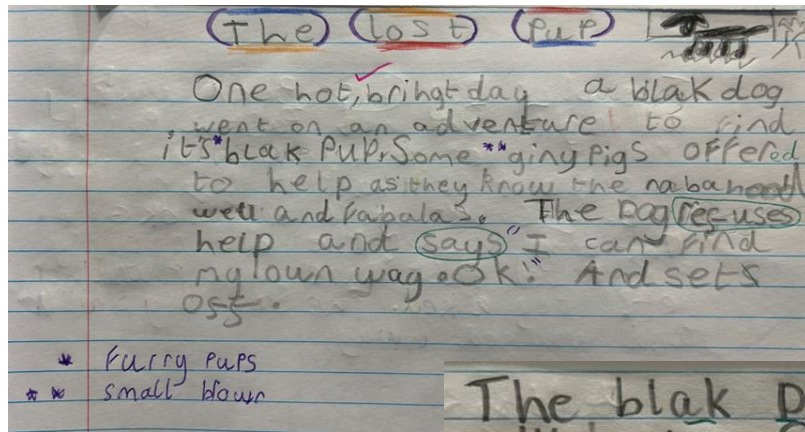 The lost PuP
One hot, bringt day a blak dog
went on an adventure to find
it's * blak PuP. Some ** giny pigs offered
to help as they know the nabahood
well and fabulas. The Dog recuses
help and says "I can find
my own way. Ok!" And sets
off.
* Furry Pups
** small brown
The blak